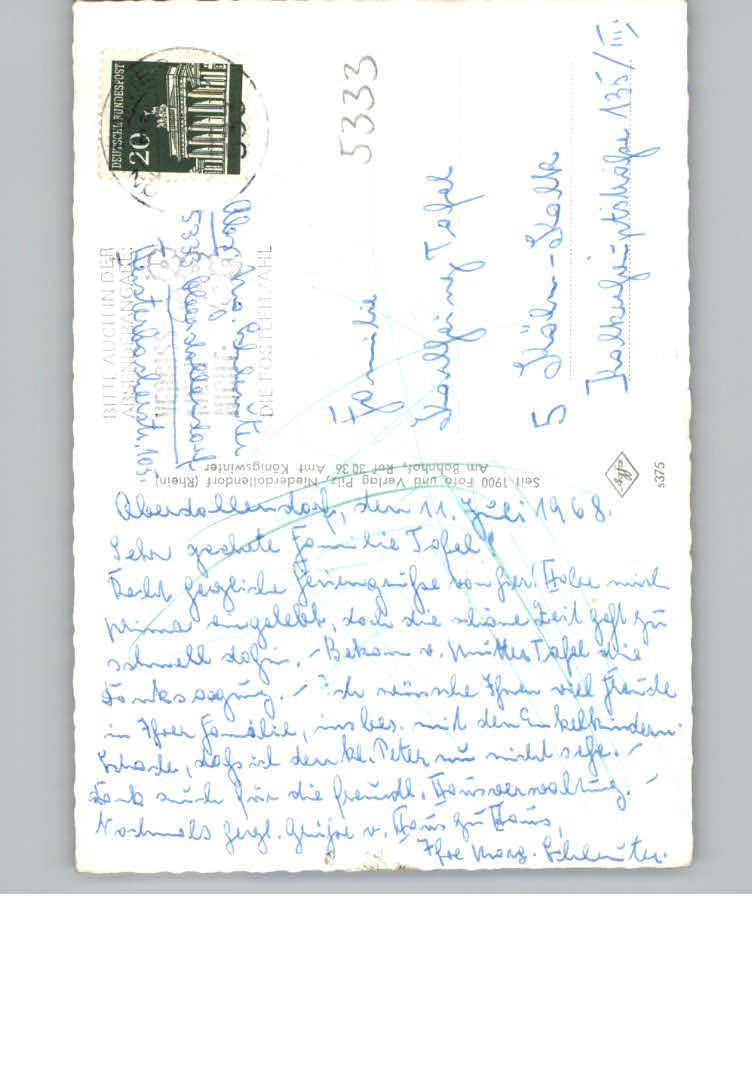 DEUTSCHE BUNDESPOST
20
5333
BITTE AUCH IN DER
ABSENDERANGABE
VERGISS
MEIN
NICHT:
DIE POSTLEITZAHL
Abs.: Marg. Schleuter
5333 Oberdollendorf
Heisterbacherstr. 103.
Familie
Karlheinz Tafel
5 Köln-Kalk
Kalkerhauptstraße 135/III.
Seit 1900 Foto und Verlag Pilz, Niederdollendorf (Rhein)
Am Bahnhof, Ruf 30 36 Amt Königswinter
Agfa
s375
Oberdollendorf, den 11. Juli 1968.
Sehr geehrte Familie Tafel!
Recht herzliche Feriengrüße von hier! Habe mich
prima eingelebt, doch die schöne Zeit geht zu
schnell dahin. – Bekam v. Mutter Tafel die
Danksagung. – Ich wünsche Ihnen viel Freude
in Ihrer Familie, insbes. mit den Enkelkindern.
Schade, daß ich den kl. Peter nun nicht sehe. –
Dank auch für die freundl. Hausverwaltung. –
Nochmals herzl. Grüße v. Haus zu Haus,
Ihre Marg. Schleuter.